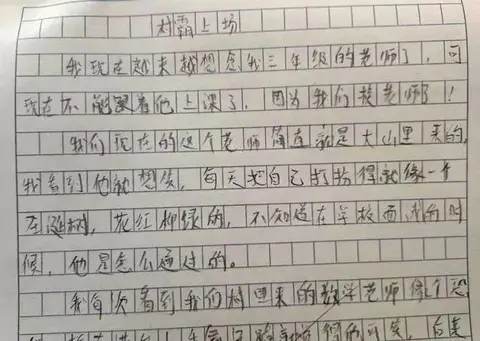 村霸上场
我现在越来越想念我三年级的老师了，可
现在不能跟着他上课了，因为我们换老师了！
我们现在的这个老师简直就是大山里来的，
我看到他就想笑，每天把自己打扮得就像一个
圣诞树，花红柳绿的，不知道在学校面试的时
候，他是怎么通过的。
我每次看到我们村回来的数学老师像个恐
得的可笑，后来